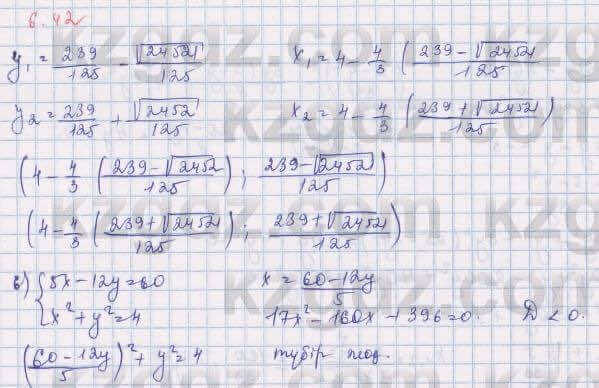 6.42
y₁ = 239/125 - √2452/125    x₁ = 4 - 4/3 (239 - √2452/125)
y₂ = 239/125 + √2452/125    x₂ = 4 - 4/3 (239 + √2452/125)
(4 - 4/3 (239 - √2452/125) ; 239 - √2452/125)
(4 - 4/3 (239 + √2452/125) ; 239 + √2452/125)
в) {5x - 12y = 60    x = 60 - 12y/5
x² + y² = 4    17x² - 160x + 396 = 0.    D < 0.
(60 - 12y/5)² + y² = 4    түбір жоқ.